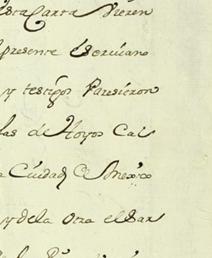 esta Carta Vieren
presente Escrivano
y testigos Paresieron
las de Hoyos Cai
a Ciudad de Mexico
y de la otra el Bar